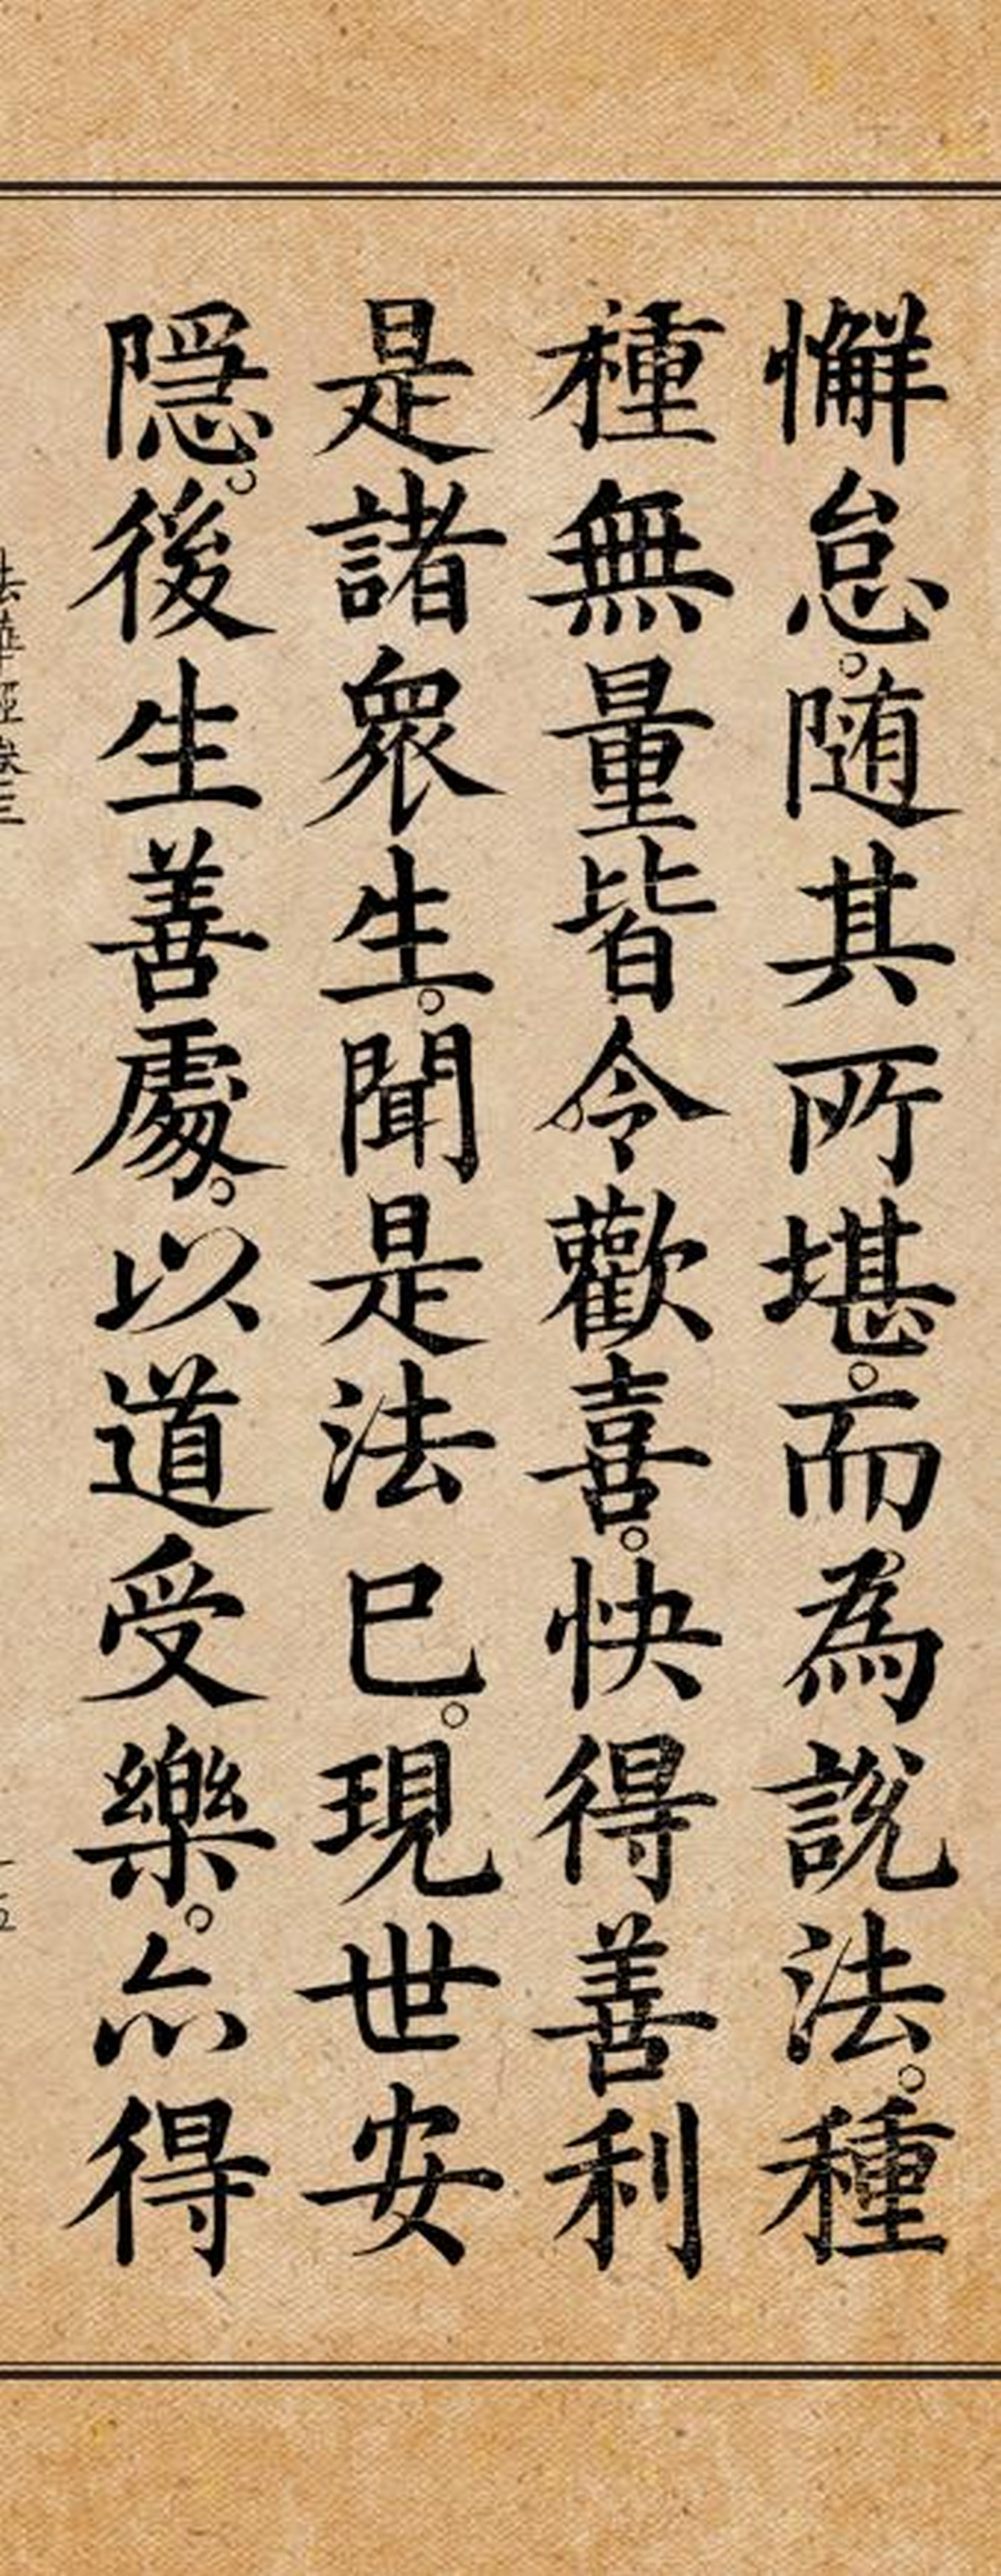 懈怠。随其所堪。而為說法。種
種無量皆令歡喜。快得善利
是諸眾生。聞是法已。現世安
隱。後生善處。以道受樂。亦得
法華經卷三